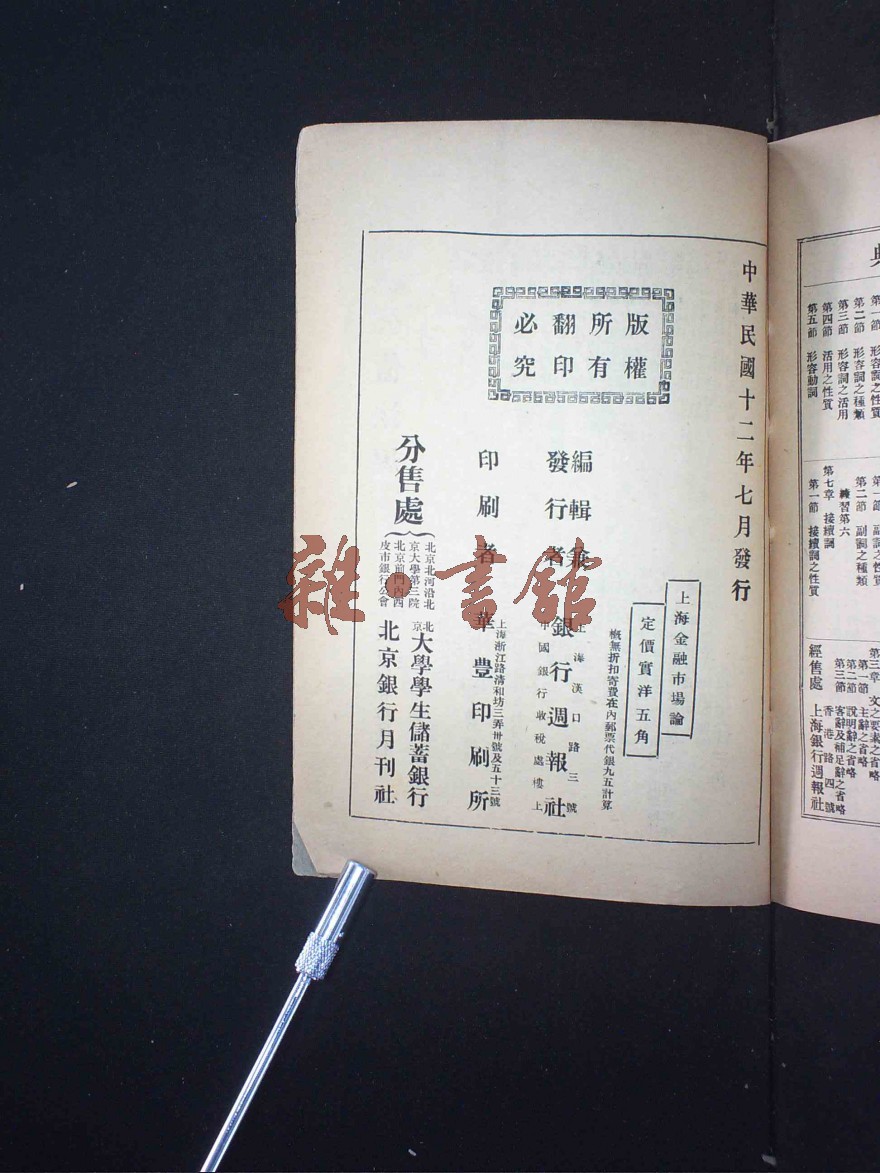 第一節　形容詞之性質
第二節　形容詞之種類
第三節　形容詞之活用
第四節　活用之性質
第五節　形容動詞
第一節　副詞之性質
第二節　副詞之種類
練習第六
第七章　接續詞
第一節　接續詞之性質
第三章　文之要素之省略
第一節　主辭之省略
第二節　說明辭之省略
第三節　客辭及補足辭之省略
經售處　上海銀行週報社
香港路四號
中華民國十二年七月發行
版權所有
翻印必究
上海金融市場論
定價實洋五角
概無折扣寄費在內郵票代銀九五計算
編輯兼發行者
上海漢口路三號
銀行週報社
中國銀行收稅處樓上
上海浙江路清和坊三弄卅號及五十三號
印刷者　華豐印刷所
分售處
北京北河沿北京大學第三院
北京大學學生儲蓄銀行
北京前門內西皮市銀行公會
北京銀行月刊社
雜書館